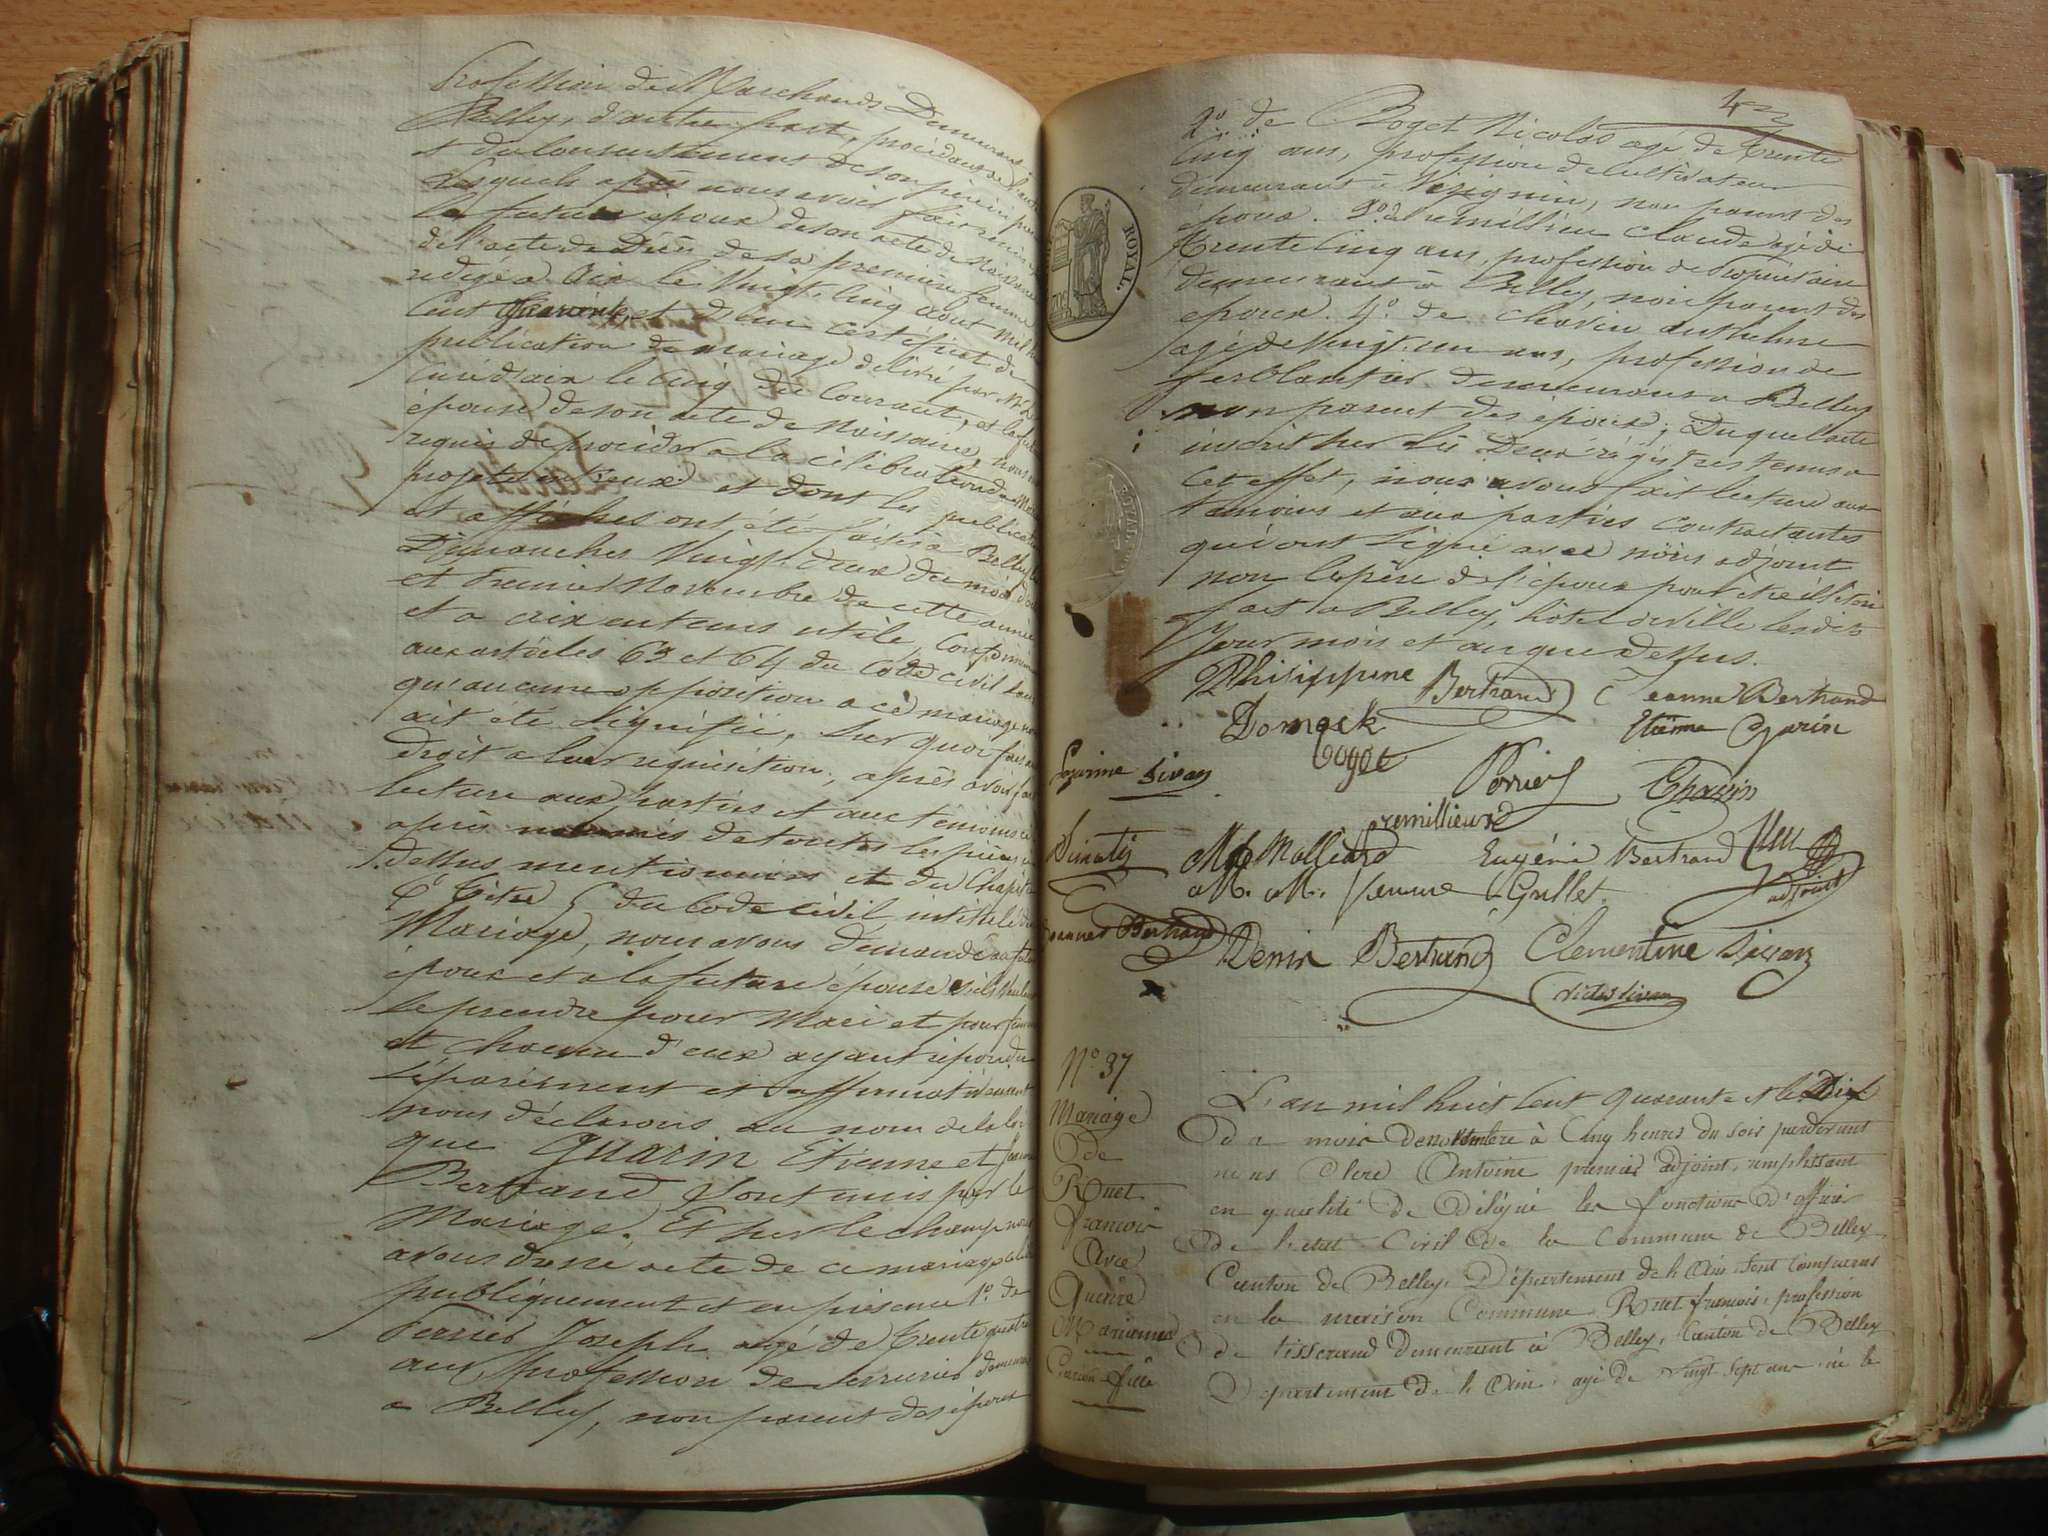 Profession de Marchands Demeurant
Belley, d'autre part, procédant
et du Consentement de son père
Lesquels après nous avoir fait
le futur époux de son acte de Naissance
de l'acte de Décès de sa première femme
rédigé a Aix le Vingt Cinq aout mil
Cent quarante, et d'un Certificat de
publication de mariage délivré par
Curé d'aix le Cinq du Courant, et la future
épouse de son acte de Naissance, nous
requis de procéder a la célébration du
projeté entr'eux et dont les publications
et affiches ont été faites à Belley
Dimanches Vingt Deux du mois
et premier Novembre de cette année
et a aix en tems utile, Conformément
aux articles 63 et 64 du Code civil
qu'aucune opposition a ce mariage
ait été signifiée, Sur quoi
droit a leur réquisition, après avoir
lecture aux parties et aux témoins
après nommés de toutes les pièces
dessus mentionnées et du Chapitre
6 Titre 5 du Code civil intitulé
Mariage, nous avons demandé au futur
époux et a la future épouse s'ils veulent
se prendre pour Mari et pour femme
et chacun d'eux ayant répondu
séparément et affirmativement
nous déclarons au nom de la loi
que Guarin Etienne et
Bertrand sont unis par le
Mariage. Et sur le champ nous
avons dressé acte de ce mariage
publiquement et en présence 1º. de
Perrier Joseph agé de Trente quatre
ans profession de Serrurier demeurant
a Belley, non parent des époux
2º de Boget Nicolas agé de Trente
Cinq ans, profession de Cultivateur
demeurant à, non parent des
époux. 3º. de remillieu Claude agé de
Trente Cinq ans, profession de Propriétaire
demeurant à Belley, non parent des
époux. 4º. de Chavin Anthelme
agé de Vingt un ans, profession de
ferblantier demeurant a Belley
non parent des époux; Duquel acte
inscrit sur les Deux régistres tenus a
Cet effet, nous avons fait lecture aux
témoins et aux parties Contractantes
qui ont signé avec nous adjoint
non le père de l'époux pour être illétéré
fait a Belley, hôtel de ville lesdits
Jour mois et an que dessus.
ROYAL.
Philippine Bertrand Jeanne Bertrand
Domeck Etienne Garin
Boget
Sivan
Perrier Chavin
remillieux
Eugénie Bertrand
adjoint
M. M. Jeanne Grillet
Bertrand
Denis Bertrand Clementine Sivan
Nº 37
Mariage
de
Ruet
françois
Avec
Marianne
L'an mil huit Cent quarante et le Dix
du mois de novembre à Cinq heures du soir pardevant
nous Clerc Antoine premier adjoint, remplissant
en qualité de Délégué les fonctions d'officier
de l'etat Civil de la Commune de Belley
Canton de Belley, Département de l'Ain. Sont Comparus
en la maison Commune Ruet françois, profession
de tisserand Demeurant à Belley, Canton de Belley
Département de l'Ain, agé de Vingt Sept ans né le